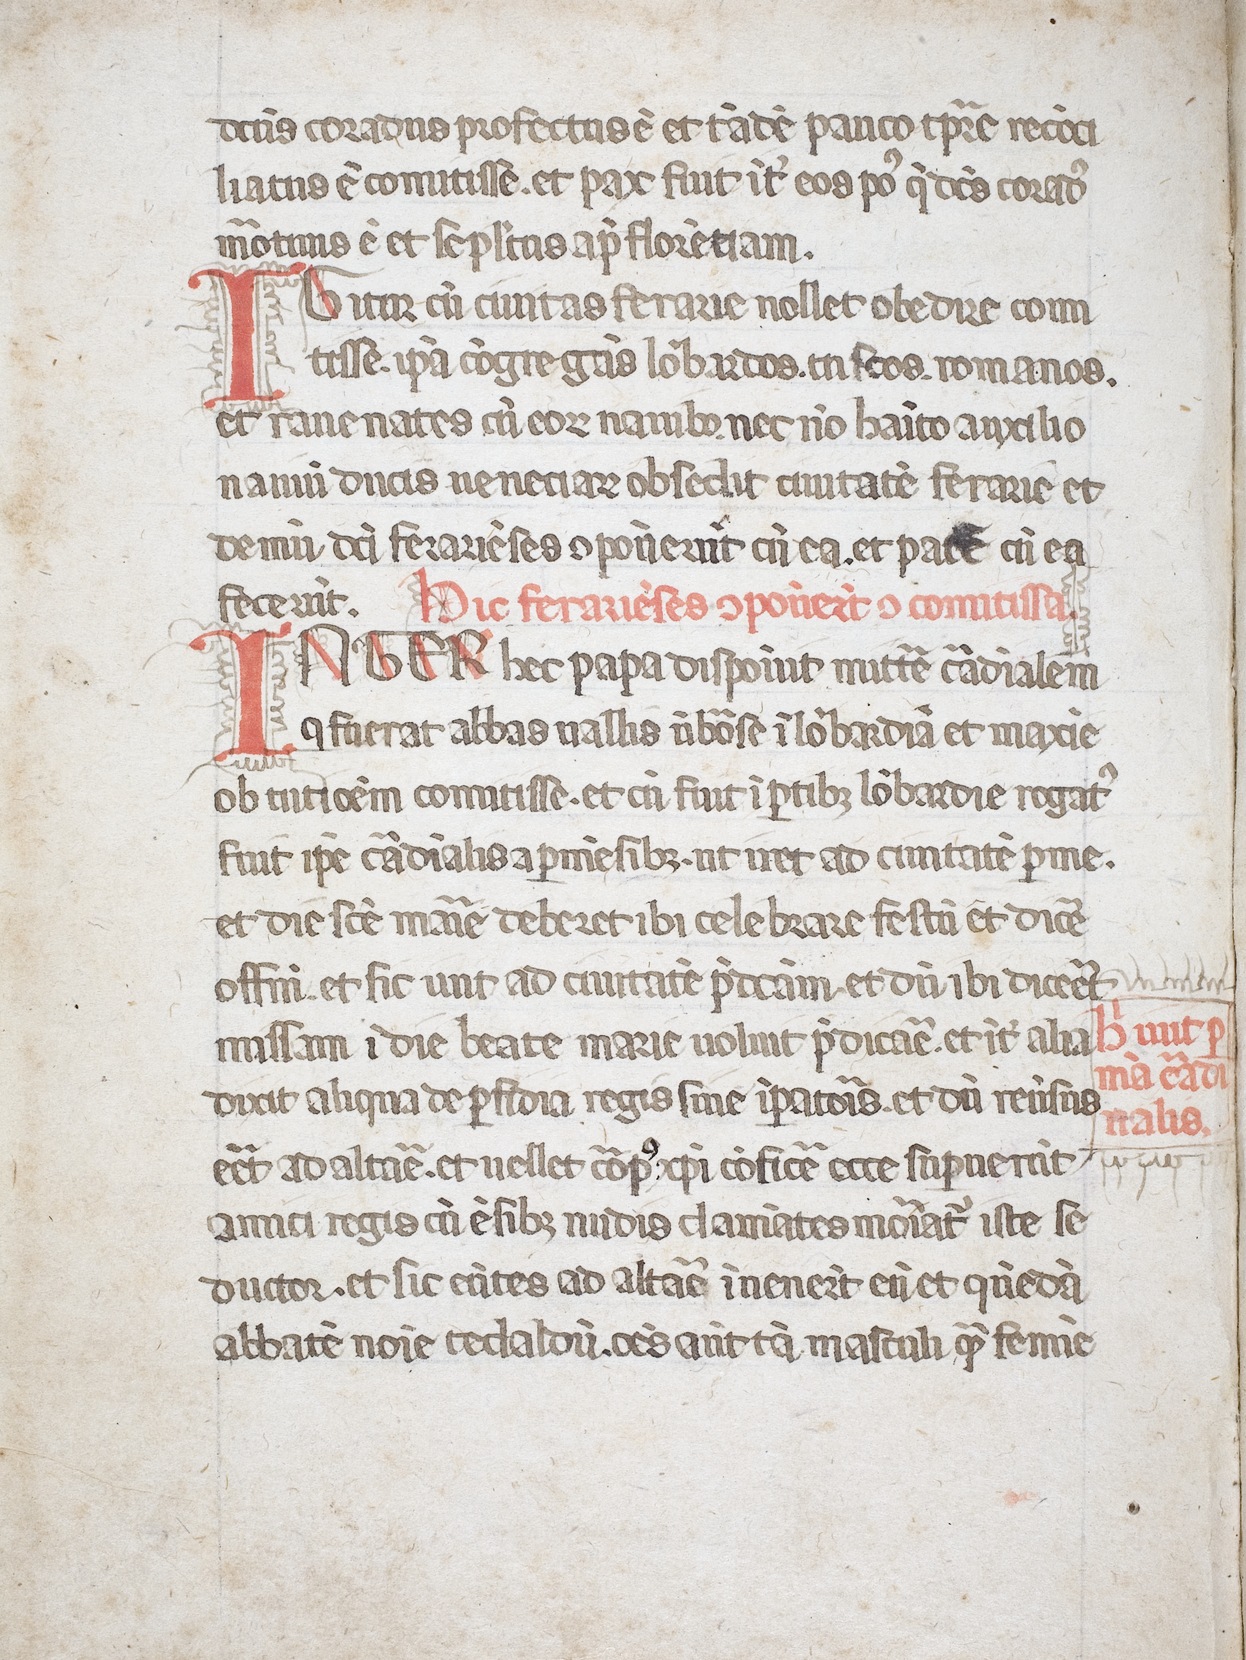 dictus coradus profectus ē et tādē pauco tp̄re recōci
liatus ē comitisse. et pax fuit īt̄ eos po' q̄ dc̄s corad'
mōtuus ē et sepl̄tus ap̄ florētiam.
IGitur cū ciuitas ferarie nollet obedire comi
tisse. ip̄a cōgregās lōbardos. tuscos. romanos.
et rauenates cū eoꝝ nauibꝫ. nec nō hāito auxilio
nauiū ducis ueneciaꝝ obsedit ciuitatē ferarie et
demū dc̄i ferariēses ɔpōuerūt cū ea. et pacē cū ea
fecerūt. Hic ferariēses ɔpōuerūt ɔ comitissa.
INTER hec papa dispōuit mittē cādīalem
q fuerat abbas uallis ūbōse ī lōbardiā et maxīe
ob tuticēm comitisse. et cū fuit ī ꝑtibꝫ lōbardie rogat'
fuit ip̄e cādīalis a ꝑmēsibꝫ. ut iret ad ciuitatē ꝑme.
et die scē māīe deberet ibi celebrare festū et dicē
offm̄. et sic iuit ad ciuitatē p̄dcām. et dū ibi dicēt
missam ī die beate marie uoluit p̄dicāē. et īt̄ alia
dixit aliqua de ꝑfidia regis siue īpatōis. et dū reūsus
eēt ad altāē. et uellet cōp' xp̄i cōficē ecce suꝑuenerūt
amici regis cū ēsibꝫ nudis clamātes mōiat̄ iste se
ductor. et sic eūtes ad altāē īuenerūt eū et quēdā
abbatē noīe tedaldū. oēs aūt tā masculi qꝫ femīe
h̄ iuit ꝑ
mā cādi
nalis.